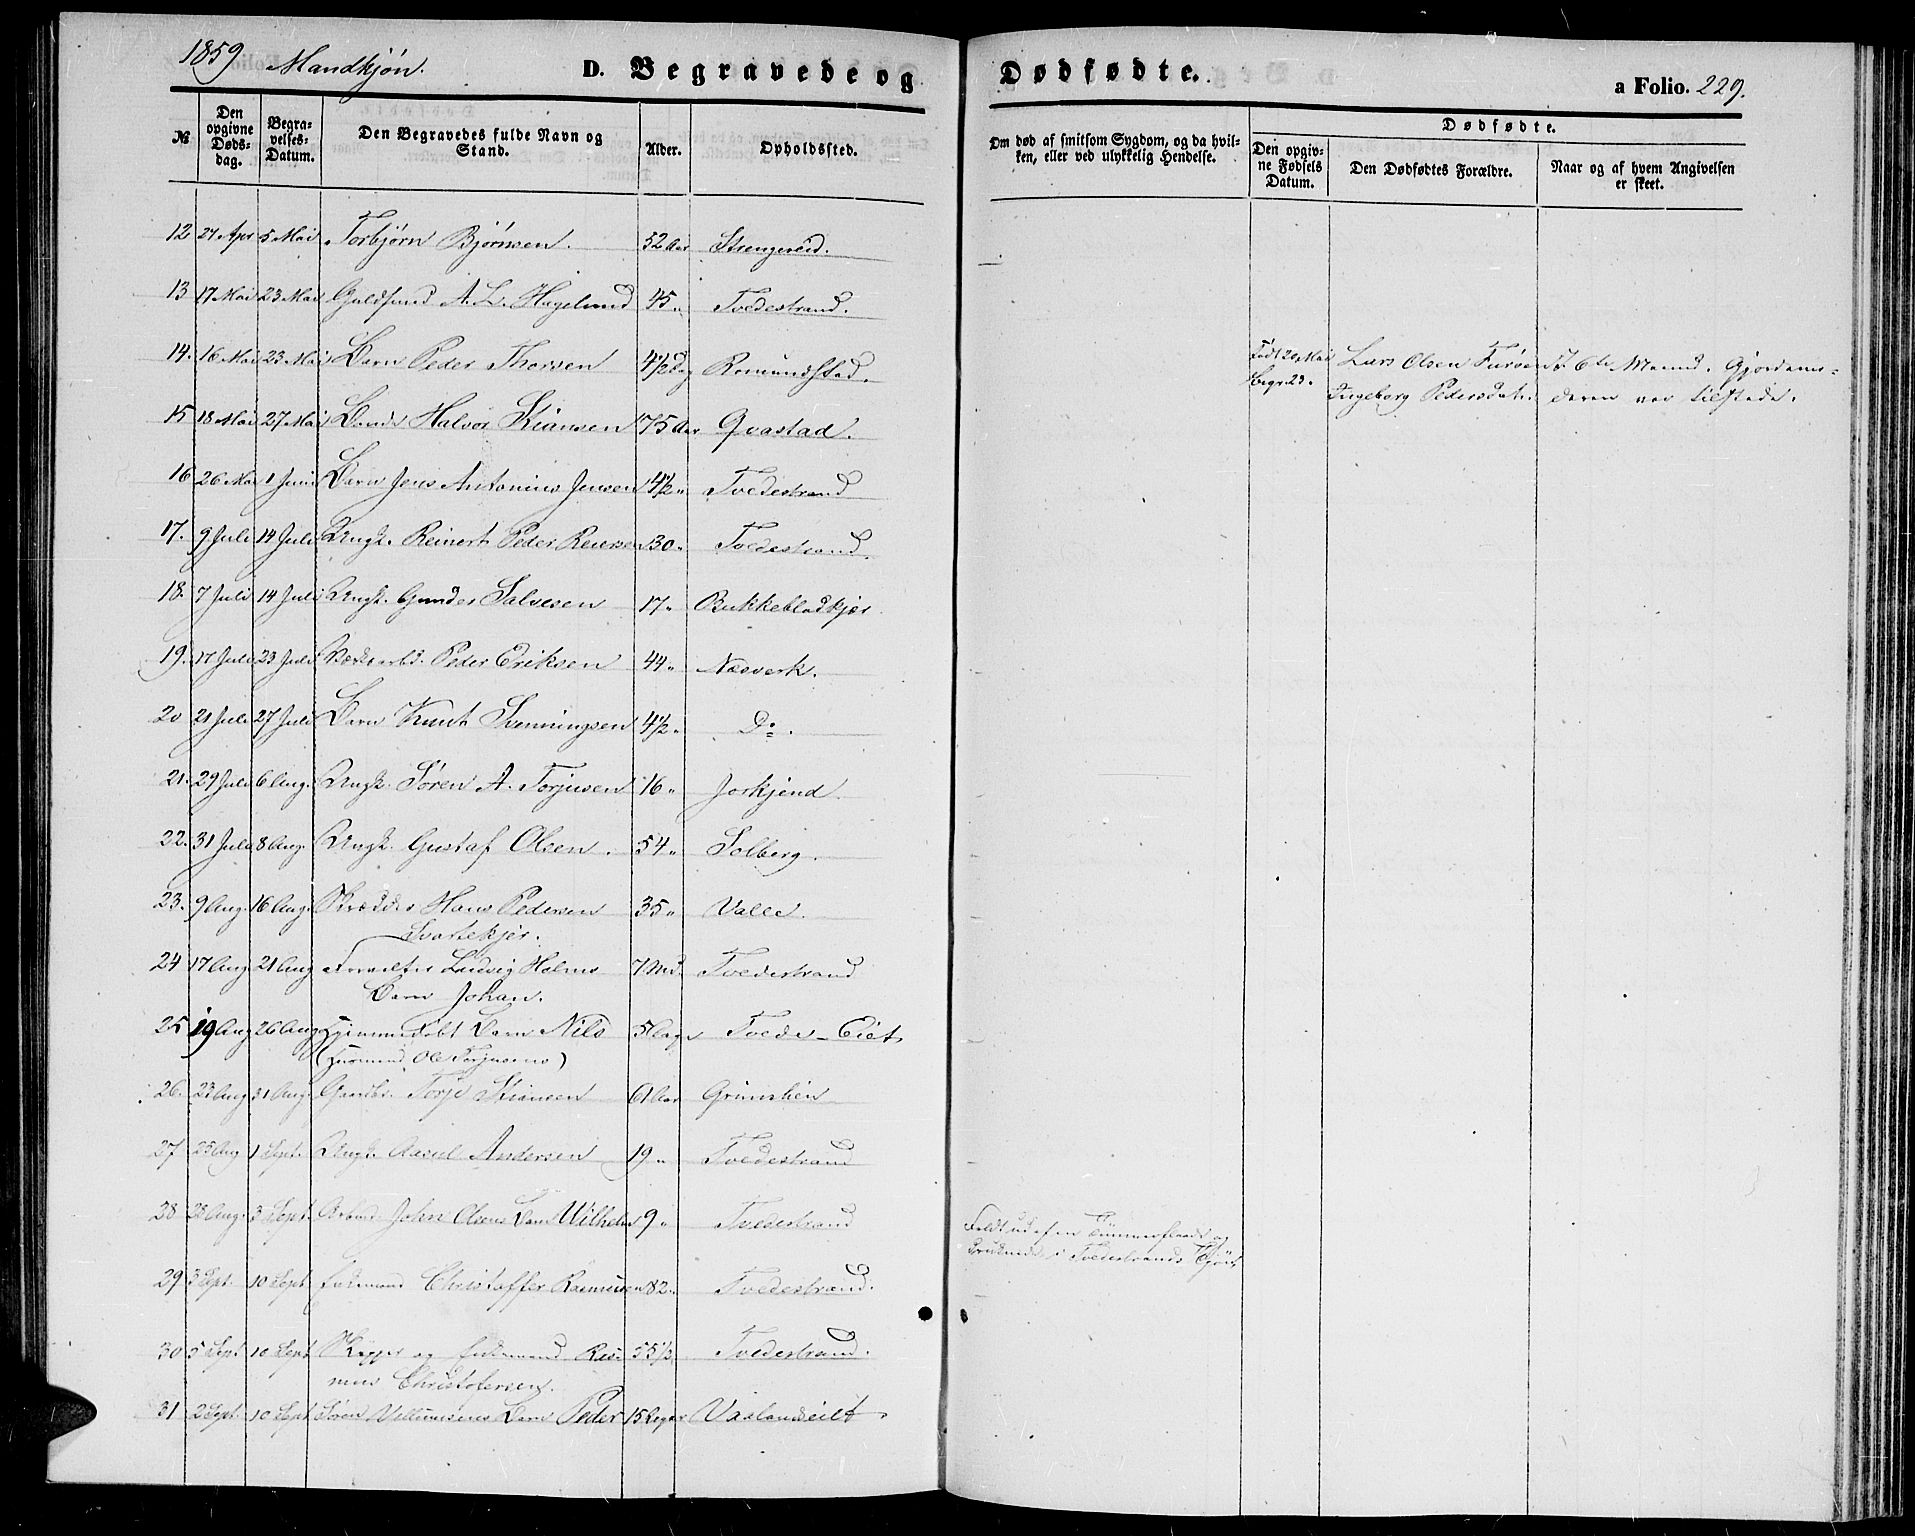 1859. Mandkjøn.
D. Begravede og Dødfødte.
a Folio. 229.
№
Den opgivne Døds-dag.
Begra-velses-Datum.
Den Begravedes fulde Navn og Stand.
Alder.
Opholdssted.
Om død af smitsom Sygdom, og da hvil-ken, eller ved ulykkelig Hendelse.
Dødfødte.
Den opgiv-ne Fødsels Datum.
Den Dødfødtes Forældre.
Naar og af hvem Angivelsen er skeet.
12 27 Apr 5 Mai Torbjørn Bjørnsen. 52 Aar Strengereid.
13 17 Mai 23 Mai Guldsmed A. L. Hagelund 45 „ Tvedestrand.
14. 16 Mai 23 Mai Barn Peder Thorsen 4½ Dg Romundstad.
Født 20 Mai Lars Olsen Furøen 6te Maaned. Gjordemo-
Begr. 23. Ingeborg Pedersdat. deren var tilstede.
15 18 Mai 27 Mai Halvor Stiansen 75 Aar Qvastad.
16 26 Mai 1 Juni Barn Jens Antonius Jensen 4½ „ Tvedestrand
17. 9 Juli 14 Juli Ungk. Reinert Peder Reiersen 30 „ Tvedestrand.
18. 7 Juli 14 Juli Ungk. Gunder Salvesen 17 „ Bukkebladkjær
19. 17 Juli 23 Juli Værksarbd. Peder Eriksen 44 „ Næsverk.
20 21 Juli 27 Juli Barn Knut Svenningsen 4½ „ Do.
21. 29 Juli 6 Aug. Ungk. Søren A. Torjusen 16 „ Jorkjend.
22. 31 Juli 8 Aug. Ungk. Gustaf Olsen. 54 „ Solberg.
23. 9 Aug. 16 Aug. Skrædder Hans Pedersen 35 „ Valle.
Svartekjer.
24 17 Aug. 21 Aug Ludvig Holms 7 Md. Tvedestrand
Barn Johan.
25 19 Aug 26 Aug Hjemmedøbt Barn Nils 5 Dage Tvede-Eiet
(Huusmand Ole Torjusens)
26. 23 Aug 31 Aug. Gaardbr. Torje Stiansen Aar Grimslien
27 25 Aug 1 Sept. Ungk. Aasul Andersen 19 „ Tvedestrand
28 28 Aug. 3 Sept. Arbmd. John Olsens Barn Wilhelm 9 „ Tvedestrand
Faldt ud af en Tømmerflaade og
druknede i Tvedestrands Fjord
29 3 Sept. 10 Sept. Christoffer Rasmussen 82 „ Tvedestrand.
30 5 Sept 10 Sept Skipper og Ras- 55½ Tvedestrand.
mus Christofersen.
31 2 Sept. 10 Sept Søren Vellumsens Barn Peder 15 Dage Vaalandseilt